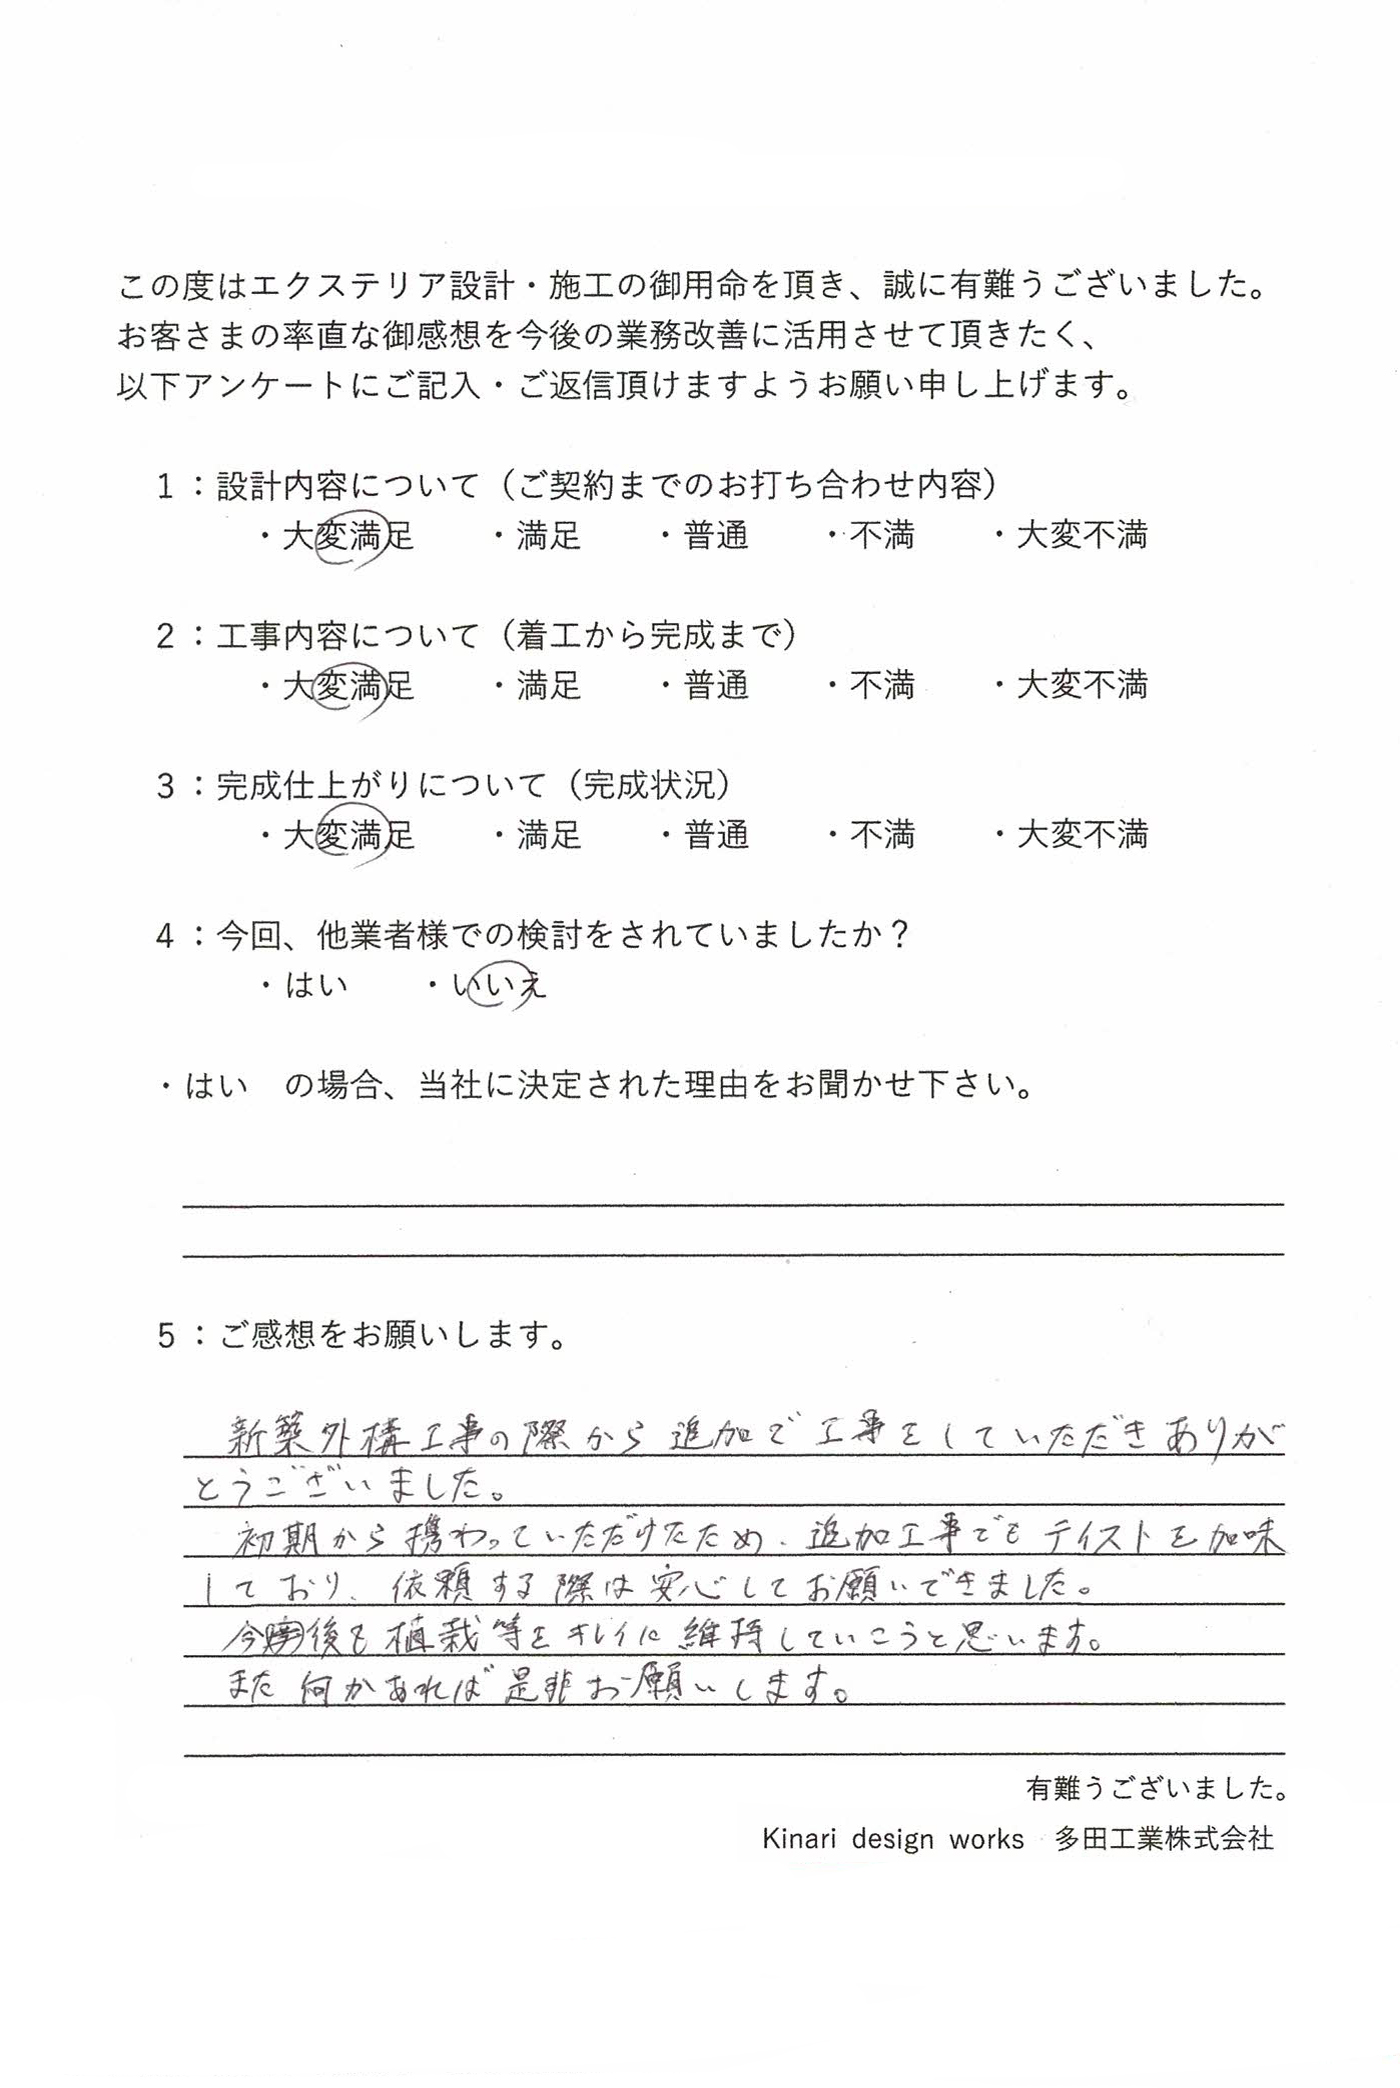 この度はエクステリア設計・施工の御用命を頂き、誠に有難うございました。
お客さまの率直な御感想を今後の業務改善に活用させて頂きたく、
以下アンケートにご記入・ご返信頂けますようお願い申し上げます。
1：設計内容について（ご契約までのお打ち合わせ内容）
・大変満足　・満足　・普通　・不満　・大変不満
2：工事内容について（着工から完成まで）
・大変満足　・満足　・普通　・不満　・大変不満
3：完成仕上がりについて（完成状況）
・大変満足　・満足　・普通　・不満　・大変不満
4：今回、他業者様での検討をされていましたか？
・はい　・いいえ
・はい　の場合、当社に決定された理由をお聞かせ下さい。
5：ご感想をお願いします。
新築外構工事の際から追加で工事をしていただきありが
とうございました。
初期から携わっていただけたため、追加工事でもテイストを加味
しており、依頼する際は安心してお願いできました。
今後も植栽等をキレイに維持していこうと思います。
また何かあれば是非お願いします。
有難うございました。
Kinari design works　多田工業株式会社